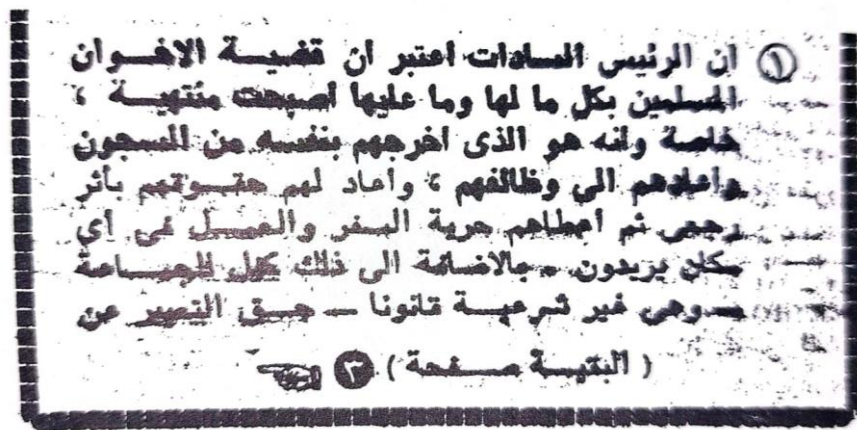 ① ان الرئيس السادات اعتبر ان قضيـــة الاخـــوان
المسلمين بكل ما لها وما عليها اصبحت منتهيـــة ،
خاصة وانه هو الذى اخرجهم بنفسه من السجون
واعادهم الى وظائفهم ، وأعاد لهم حقـــوقهم بأثر
رجعى ثم أعطاهم حرية السفر والعمـــل فى أى
مكان يريدون . بالاضافة الى ذلك كفل للجمـــاعة
ــ وهى غير شرعيـــة قانونا ــ حـــق التعبير عن
( البقيـــة صـــفحة ) ٣